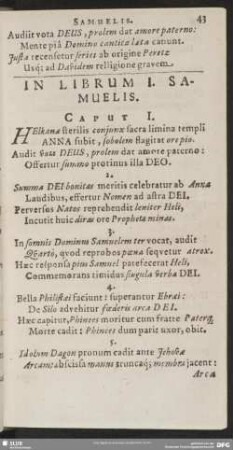 SAMUELIS. 43
Audiit vota DEUS, prolem dat amore paterno:
Mente piâ Domino cantica læta canunt.
Justa recensetur series ab origine Peretz
Usq; ad Davidem relligione gravem.
IN LIBRUM I. SA-
MUELIS.
CAPUT I.
HElkanæ sterilis conjunx sacra limina templi
ANNA subit, sobolem flagitat ore pio.
Audit vota DEUS, prolem dat amore paterno:
Offertur summo protinus illa DEO.
2.
Summa DEI bonitas meritis celebratur ab Anna
Laudibus, effertur Nomen ad astra DEI.
Perversos Natos reprehendit leniter Heli,
Incutit huic diras ore Propheta minas.
3.
In somnis Dominus Samuelem ter vocat, audit
Quartò, quod reprobos pœna sequetur atrox.
Hæc responsa pius Samuel patefecerat Heli,
Commemorans timidus singula verba DEI.
4.
Bella Philistæi faciunt: superantur Ebræi:
De Silo advehitur fœderis arca DEI.
Hæc capitur, Phinees moritur cum fratre Paterq;
Morte cadit: Phinees dum parit uxor, obit.
5.
Idolum Dagon pronum cadit ante Jehovæ
Arcam: abscissa manus truncaq; membra jacent:
Arca